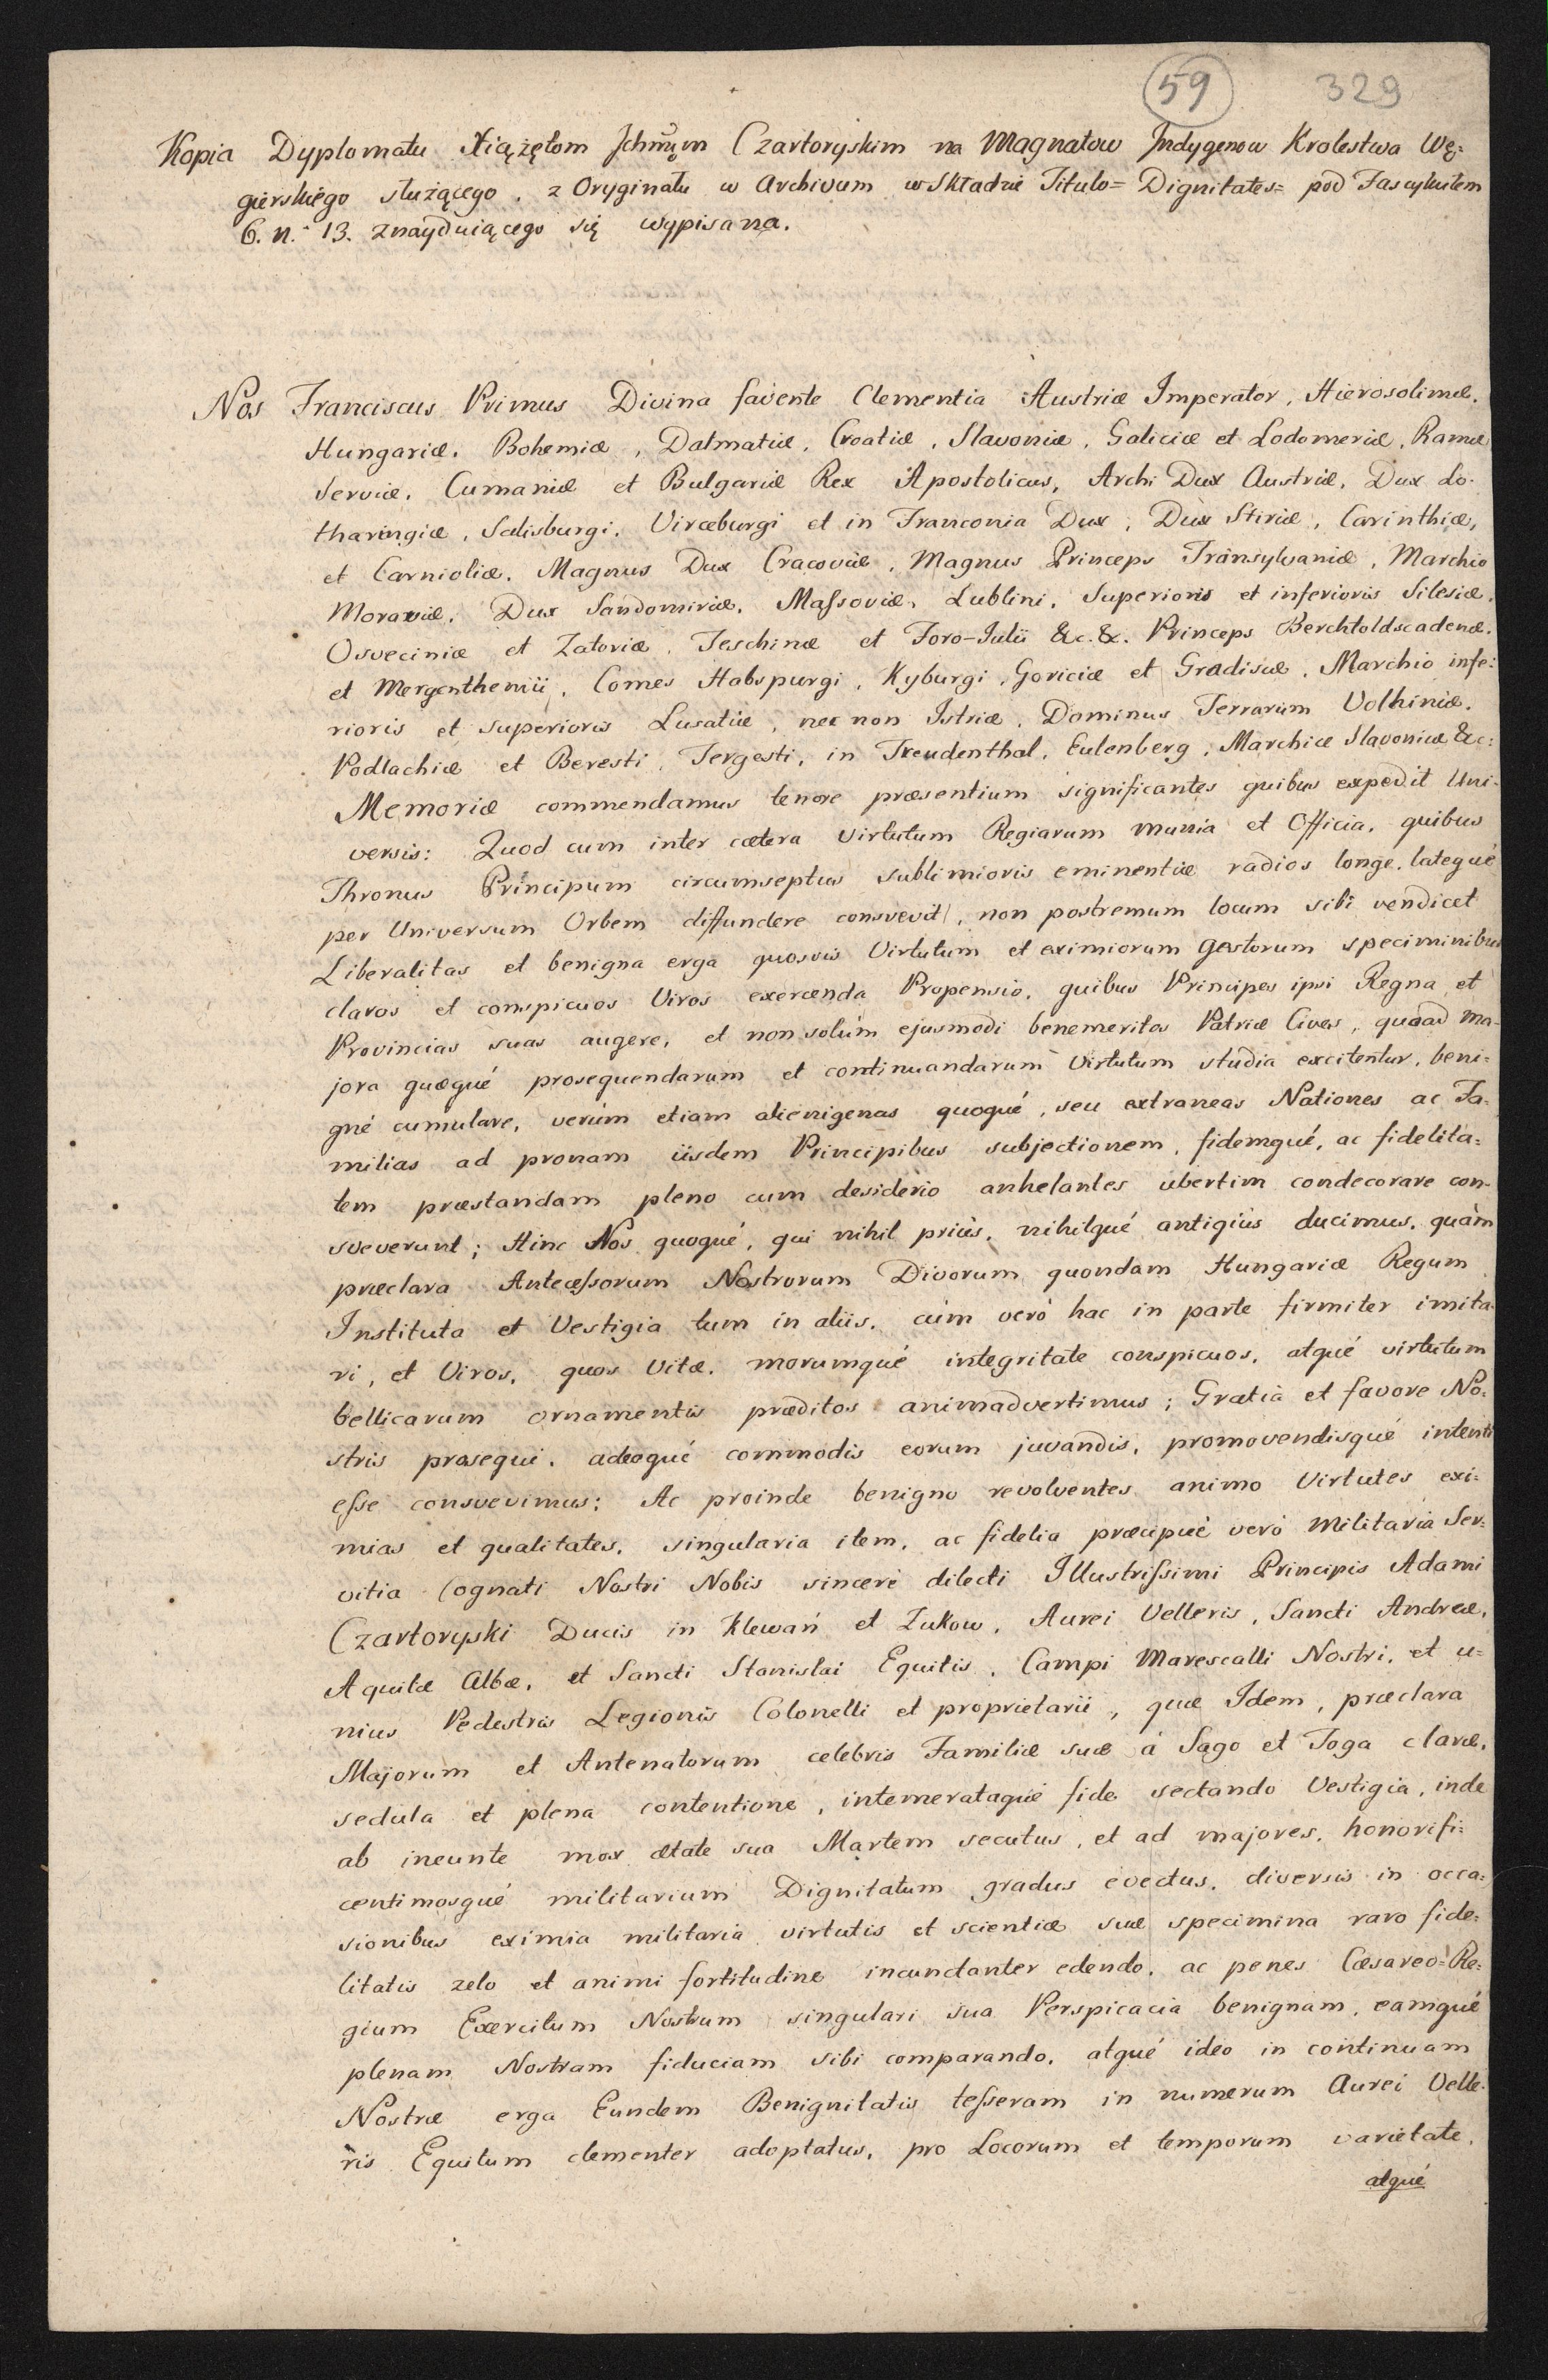 59 329
Kopia Dyplomatu Xiążętom Jchmm Czartoryskim na Magnatow Jndygenow Krolestwa Wę=
gierskiego służącego, z Oryginału w Archivum w Składzie Titulo= Dignitates= pod Fascykułem
6. n.° 13. znayduiącego się wypisana.
Nos Franciscus Primus Divina favente Clementia Austriæ Imperator, Hierosolimæ,
Hungariæ, Bohemiæ, Dalmatiæ, Croatiæ, Slavoniæ, Galiciæ et Lodomeriæ, Ramæ
Serviæ, Cumaniæ et Bulgariæ Rex Apostolicus, Archi Dux Austriæ, Dux Lo-
tharingiæ, Salisburgi, Virceburgi et in Franconia Dux, Dux Stiriæ, Carinthiæ,
et Carnioliæ, Magnus Dux Cracoviæ, Magnus Princeps Transylvaniæ, Marchio
Moraviæ, Dux Sandomiriæ, Maſsoviæ, Lublini, Superioris et inferioris Silesiæ,
Osveciniæ et Zatoriæ, Teschinæ et Foro-Julii &c. &. Princeps Berchtoldscadenæ,
et Mergenthemii, Comes Habspurgi, Kyburgi, Goriciæ et Gradiscæ, Marchio infe=
rioris et superioris Lusatiæ, nec non Istriæ, Dominus Terrarum Volhiniæ,
Podlachiæ et Beresti, Tergesti, in Freudenthal, Eulenberg, Marchiæ Slavonicæ &c:
Memoriæ commendamus tenore præsentium significantes quibus expedit Uni-
versis: Quod cum inter cætera Virtutum Regiarum munia et Officia, quibus
Thronus Principum circumseptus sublimioris eminentiæ radios longe, latequé
per Universum Orbem diffundere consvevit, non postremum locum sibi vendicet
Liberalitas et benigna erga quosvis Virtutum et eximiorum gestorum speciminibus
claros et conspicuos Viros exercenda Propensio, quibus Principes ipsi Regna et
Provincias suas augere, et non solúm ejusmodi benemeritos Patriæ Cives, quoad ma-
jora quæqué prosequendarum et continuandarum Virtutum studia excitentur, beni=
gné cumulare, verùm etiam alienigenas quoqué, seu extraneas Nationes ac Fa=
milias ad pronam iisdem Principibus subjectionem, fidemqué, ac fidelita=
tem præstandam pleno cum desiderio anhelantes ubertim condecorare con-
sveverunt; Hinc Nos quoqué, qui nihil priùs, nihilqué antiqiùs ducimus, quàm
præclara Anteceſsorum Nostrorum Divorum quondam Hungariæ Regum
Instituta et Vestigia tum in aliis, cùm verò hac in parte firmiter imita-
ri, et Viros, quos Vitæ, morumqué integritate conspicuos, atqué virtutum
bellicarum ornamentis præditos animadvertimus; Gratia et favore No=
stris prosequi, adeoqué commodis eorum juvandis, promovendisqué intenti
eſse consvevimus; Ac proinde benigno revolventes animo Virtutes exi=
mias et qualitates, singularia item, ac fidelia præcipuè verò Militaria Ser=
vitia Cognati Nostri Nobis sincerè dilecti Illustriſsimi Principis Adami
Czartoryski Ducis in Klewań et Żukow, Aurei Velleris, Sancti Andreæ,
Aquilæ Albæ, et Sancti Stanislai Equitis, Campi Marescalli Nostri, et u=
nius Pedestris Legionis Colonelli et proprietarii, quæ Idem, præclara
Majorum et Antenatorum celebris Familiæ suæ á Sago et Toga claræ,
sedula et plena contentione, intemerataqué fide sectando Vestigia, inde
ab ineunte mox ætate sua Martem secutus, et ad majores, honorifi=
centimosqué militarium Dignitatum gradus evectus, diversis in occa=
sionibus eximia militaria virtutis et scientiæ suæ specimina raro fide=
litatis zelo et animi fortitudine incunctanter edendo, ac penes Cæsareo=Re=
gium Exercitum Nostrum singulari sua Perspicacia benignam, eamqué
plenam Nostram fiduciam sibi comparando, atqué ideo in continuam
Nostræ erga Eundem Benignitatis teſseram in numerum Aurei Velle-
ris Equitum clementer adoptatus, pro Locorum et temporum varietate,
atqué